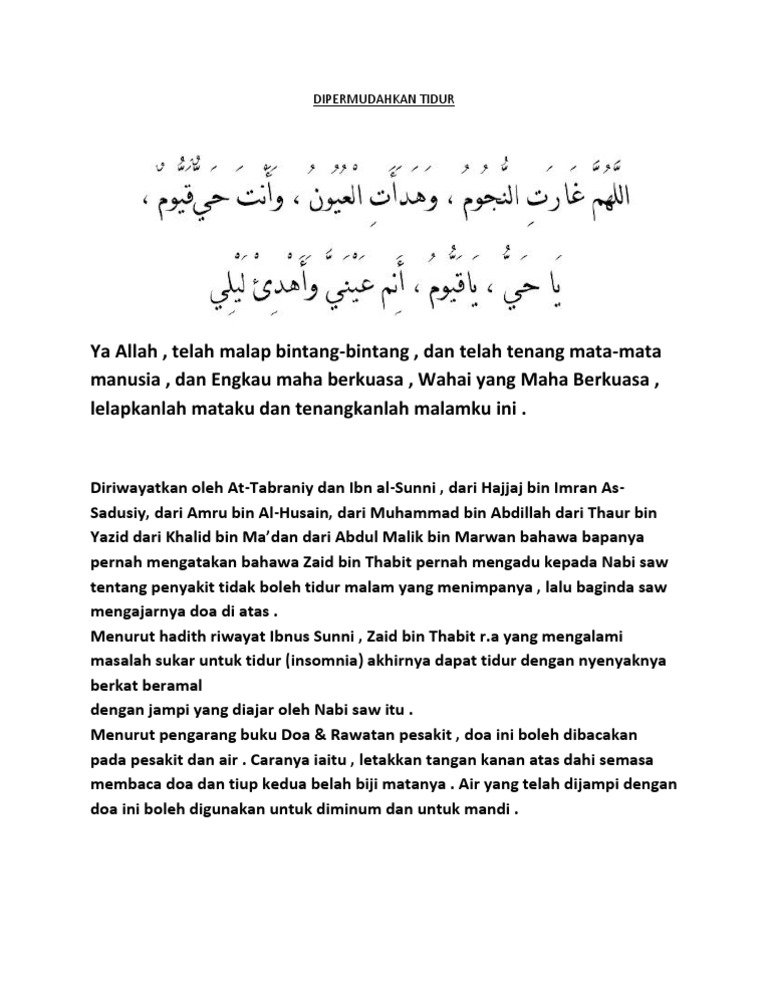 DIPERMUDAHKAN TIDUR
اللَّهُمَّ غَارَتِ النُّجُومُ ، وَهَدَأَتِ الْعُيُونُ ، وَأَنْتَ حَيٌّ قَيُّومٌ ،
يَا حَيُّ ، يَاقَيُّومُ ، أَنِمْ عَيْنِي وَأَهْدِئْ لَيْلِي
Ya Allah , telah malap bintang-bintang , dan telah tenang mata-mata
manusia , dan Engkau maha berkuasa , Wahai yang Maha Berkuasa ,
lelapkanlah mataku dan tenangkanlah malamku ini .
Diriwayatkan oleh At-Tabraniy dan Ibn al-Sunni , dari Hajjaj bin Imran As-
Sadusiy, dari Amru bin Al-Husain, dari Muhammad bin Abdillah dari Thaur bin
Yazid dari Khalid bin Ma’dan dari Abdul Malik bin Marwan bahawa bapanya
pernah mengatakan bahawa Zaid bin Thabit pernah mengadu kepada Nabi saw
tentang penyakit tidak boleh tidur malam yang menimpanya , lalu baginda saw
mengajarnya doa di atas .
Menurut hadith riwayat Ibnus Sunni , Zaid bin Thabit r.a yang mengalami
masalah sukar untuk tidur (insomnia) akhirnya dapat tidur dengan nyenyaknya
berkat beramal
dengan jampi yang diajar oleh Nabi saw itu .
Menurut pengarang buku Doa & Rawatan pesakit , doa ini boleh dibacakan
pada pesakit dan air . Caranya iaitu , letakkan tangan kanan atas dahi semasa
membaca doa dan tiup kedua belah biji matanya . Air yang telah dijampi dengan
doa ini boleh digunakan untuk diminum dan untuk mandi .